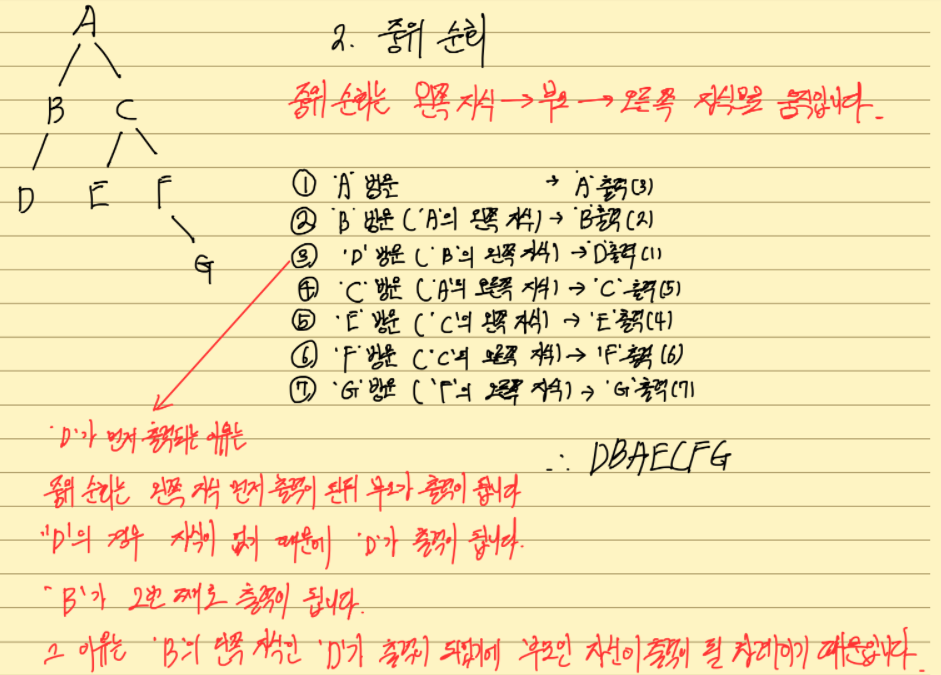 A
B C
D E F
G
2. 중위 순회
중위 순회는 왼쪽 자식 → 부모 → 오른쪽 자식으로 움직입니다.
① 'A' 방문 → 'A' 출력(3)
② 'B' 방문 ('A'의 왼쪽 자식) → 'B' 출력(2)
③ 'D' 방문 ('B'의 왼쪽 자식) → 'D' 출력(1)
④ 'C' 방문 ('A'의 오른쪽 자식) → 'C' 출력(5)
⑤ 'E' 방문 ('C'의 왼쪽 자식) → 'E' 출력(4)
⑥ 'F' 방문 ('C'의 오른쪽 자식) → 'F' 출력(6)
⑦ 'G' 방문 ('F'의 오른쪽 자식) → 'G' 출력(7)
∴ DBAECFG
'D'가 먼저 출력되는 이유는
중위 순회는 왼쪽 자식 먼저 출력이 된 뒤 부모가 출력이 됩니다
'D'의 경우 자식이 없기 때문에 'D'가 출력이 됩니다.
'B'가 2번 째로 출력이 됩니다.
그 이유는 'B'의 왼쪽 자식인 'D'가 출력이 되었기에 부모인 자신이 출력이 될 차례이기 때문입니다.